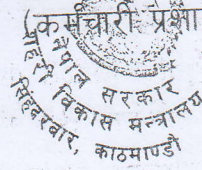 (कर्मचारी प्रशा
नेपाल सरकार
शहरी विकास मन्त्रालय
सिंहदरबार, काठमाण्डौ